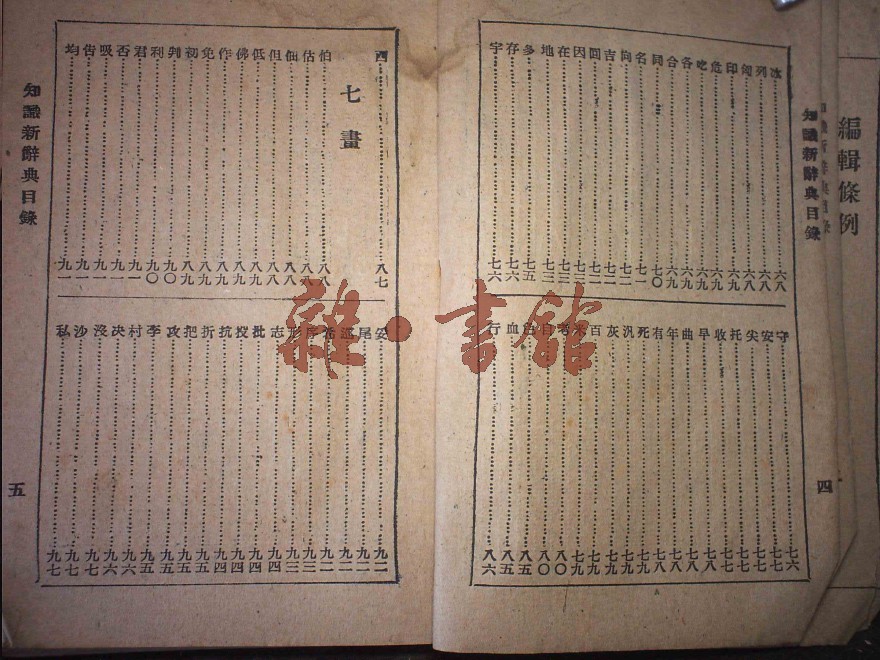 編輯條例
知識新辭典目錄
冰……六八
列……六八
匈……六八
印……六九
危……六九
吃……六九
各……六九
合……六九
同……七〇
名……七一
向……七二
吉……七二
回……七二
因……七二
在……七三
地……七三
多……七五
存……七六
宇……七六
守……七六
安……七七
尖……七七
托……七七
收……七七
早……七八
曲……七八
年……七八
有……七八
死……七九
汎……七九
灰……七九
百……七九
米……七九
老……八〇
自……八〇
舌……八五
血……八五
行……八六
四
知識新辭典目錄
西……八七
七畫
伯……八八
估……八八
佃……八八
但……八八
低……八九
佛……八九
作……八九
免……八九
初……八九
判……九〇
利……九〇
君……九一
否……九一
吸……九一
告……九一
均……九一
妥……九二
尾……九二
巡……九二
希……九二
序……九三
形……九三
志……九四
批……九四
投……九四
抗……九四
折……九五
把……九五
攻……九五
李……九五
村……九六
決……九六
沒……九七
沙……九七
私……九七
五
雜·書館